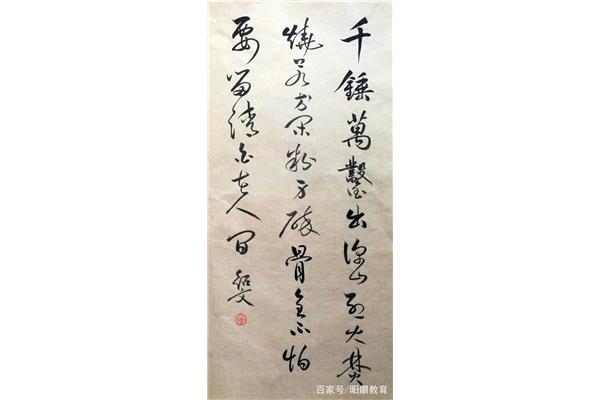 千錘萬鑿出深山烈火焚
燒若等閑粉身碎骨全不怕
要留清白在人間
百家号/教育